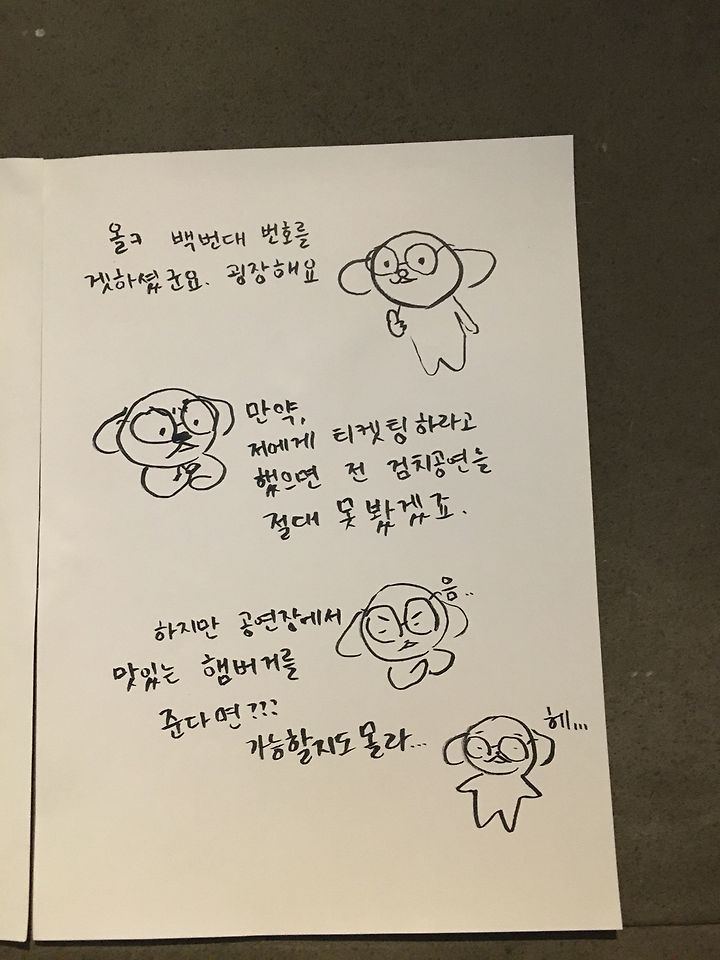 올ㅋ 백번대 번호를
겟하셨군요. 굉장해요
만약,
저에게 티켓팅하라고
했으면 전 검치공연을
절대 못 봤겠죠.
음..
하지만 공연장에서
맛있는 햄버거를
준다면???
가능할지도 몰라...
헤...